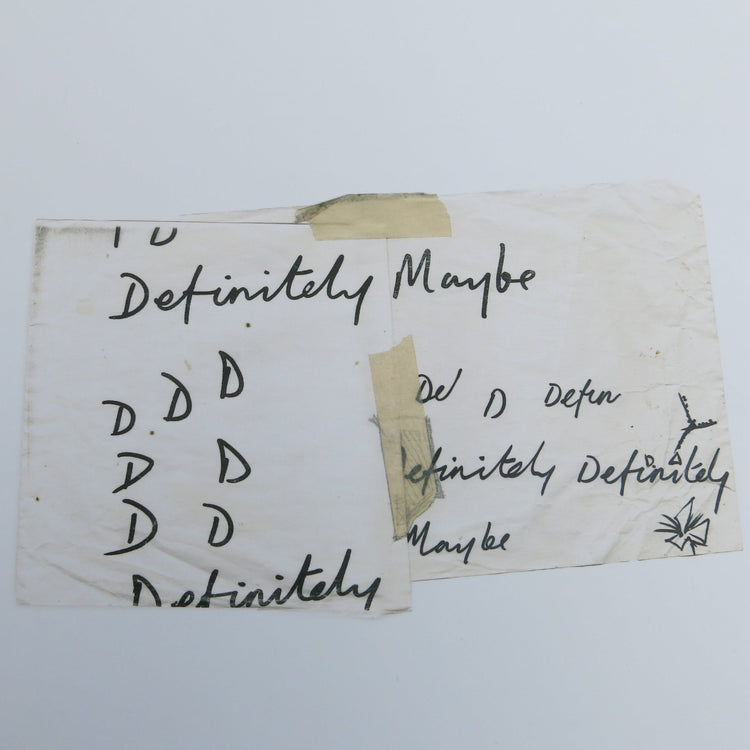 Definitely Maybe
D D D
De D Defin
D D
efinitely Definitely
D D
Maybe
Definitely